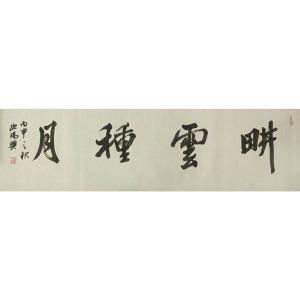 畊雲種月
丙申之秋